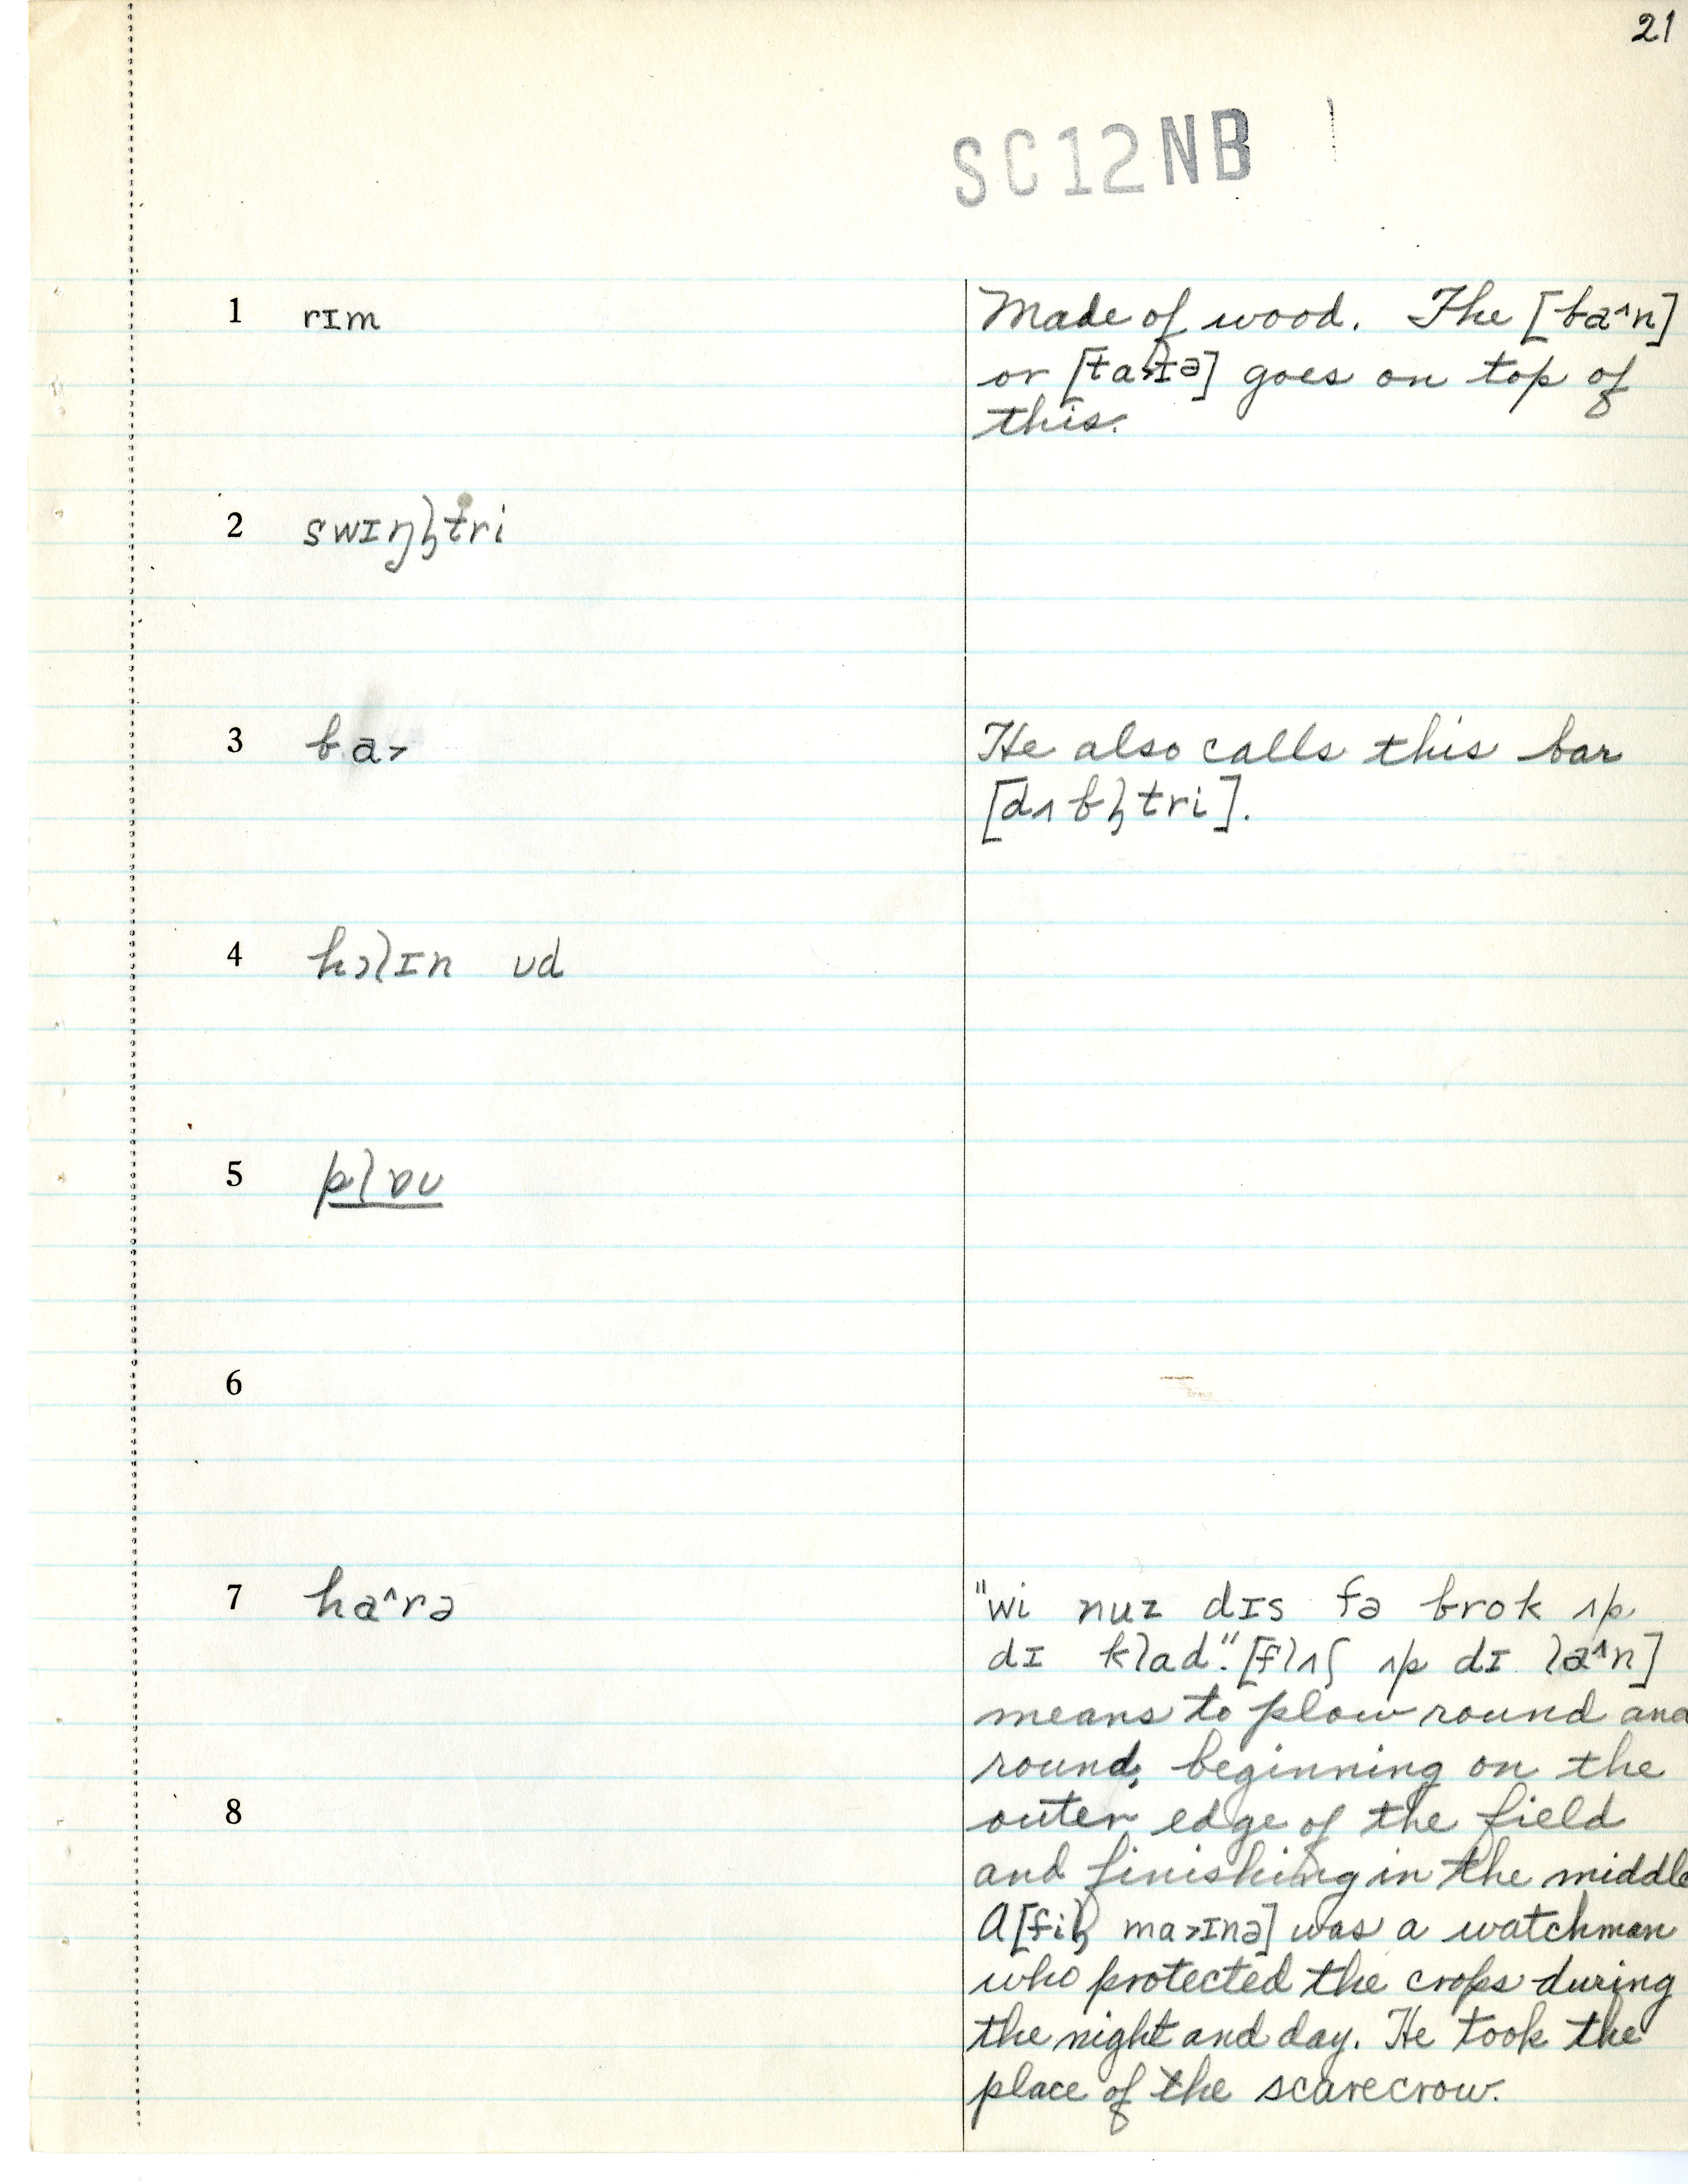 21
SC12NB
1 rɪm
Made of wood. The [ba^n]
or [taɪə] goes on top of
this.
2 swɪŋɮtri
3 ba>
He also calls this bar
[dʌbɮtri].
4 hɔlɪn ʊd
5 plɒʊ
6
7 ha^rə
"wi nuz dɪs fə brok ʌp
dɪ klad." [flʌʃ ʌp dɪ la^n]
means to plow round and
round, beginning on the
8
outer edge of the field
and finishing in the middle
A [fiɮ ma>ɪnə] was a watchman
who protected the crops during
the night and day. He took the
place of the scarecrow.